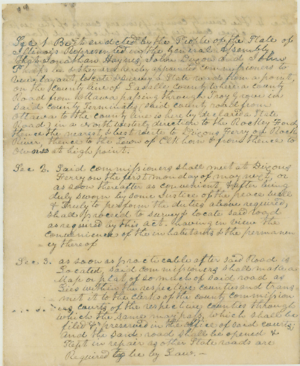 Sec 1 Be it enacted by the People of the State of
Illinois represented in the General Assembly,
That Jonathan Haynes, John and John
be and they are hereby appointed commissioners to
locate a State road from a point
on the County line of La Salle County where a county
road from Ottawa
said county terminates, said county road from
Ottawa to the county line is hereby declared State
road, in a north westerly direction to
thence the nearest & best route to Dixons Ferry on Rock
River, thence to the Town of
Sec 2. Said commissioners shall meet at Dixons
Ferry on the first monday of may next, or
as soon thereafter as convenient, & after being
duly sworn by some Justice of the peace
to perform the duties above required,
shall proceed to survey & locate said road
as required by this act. Having in view the
convenience of the inhabitants & the permanen
cy thereof
Sec. 3. as soon as practicable after said Road is
Located, said commissioners shall make a
Map or plat of so much of said road as
lies within the respective counties and trans
mit it to the clerks of the county commission
ers courts of the respective counties through
which the same may pass, which shall be
filed & preserved in the office of said courts
and the same road shall be opened &
Kept in repair as other State roads are
Required to be by Law.